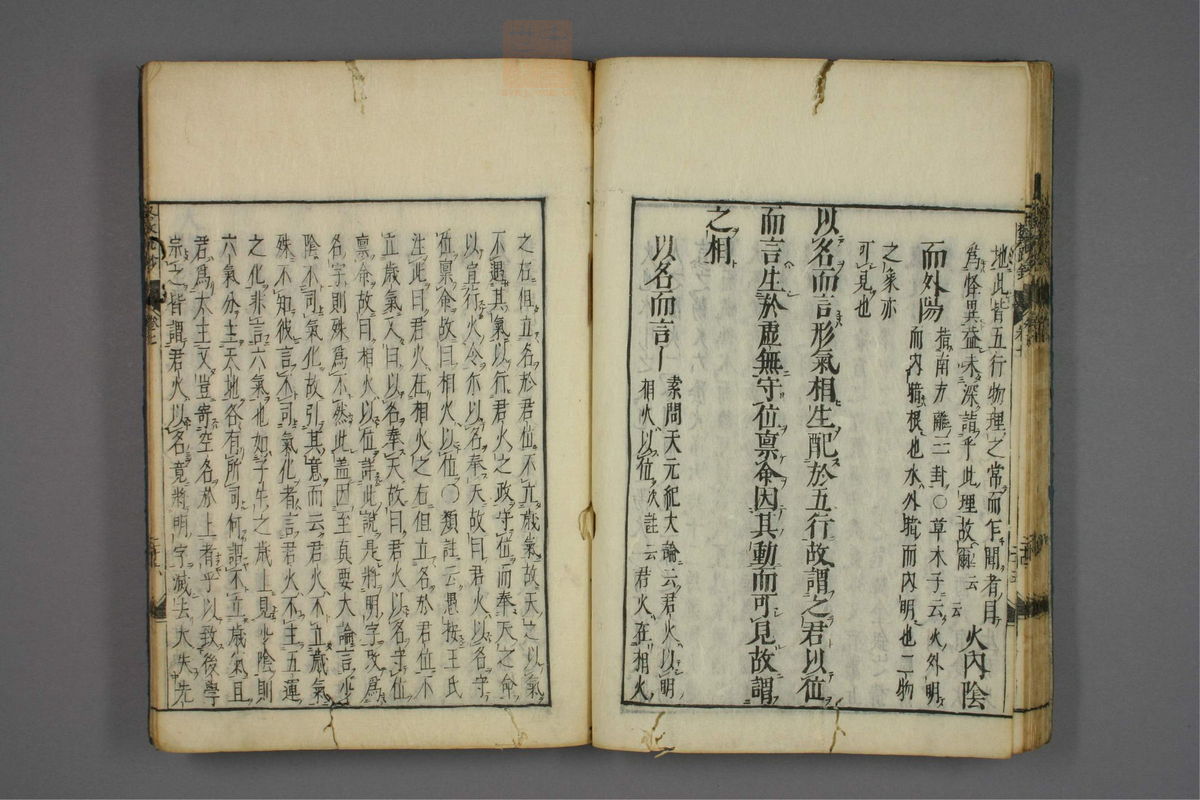 地此皆五行物理之常而乍聞者目
為怪異蓋未深諳乎此理故爾云云
火內陰
而外陽
猶南方離三卦○草木子云火外明
而內暗根也水外暗而內明也二物
之象亦
可見也
以名而言形氣相生配於五行故謂之君以位
而言生於虛無守位稟命因其動而可見故謂
之相
以名而言
素問天元紀大論云君火以明
相火以位次註云君火在相火
之右但立名於君位不立歲氣故天之以氣
不遇其氣以行君火之政守位而奉天之命
以宣行火令爾以名奉天故曰君火以名守
位稟命故曰相火以位○類註云愚按王氏
註此曰君火在相火之右但立名於君位不
立歲氣又曰以名奉天故曰君火以名守位
稟命故曰相火以位詳此說是將明字改為
名字則殊為不然此蓋因至真要大論言少
陰不司氣化故引其意而云君火不立歲氣
殊不知彼言不司氣化者言君火不主五運
之化非言六氣也如子午之歲上見少陰則
六氣分主天地各有所司何謂不立歲氣且
君為大主又豈寄空名於上者乎以致後學
宗之皆謂君火以名竟將明字滅去大失先